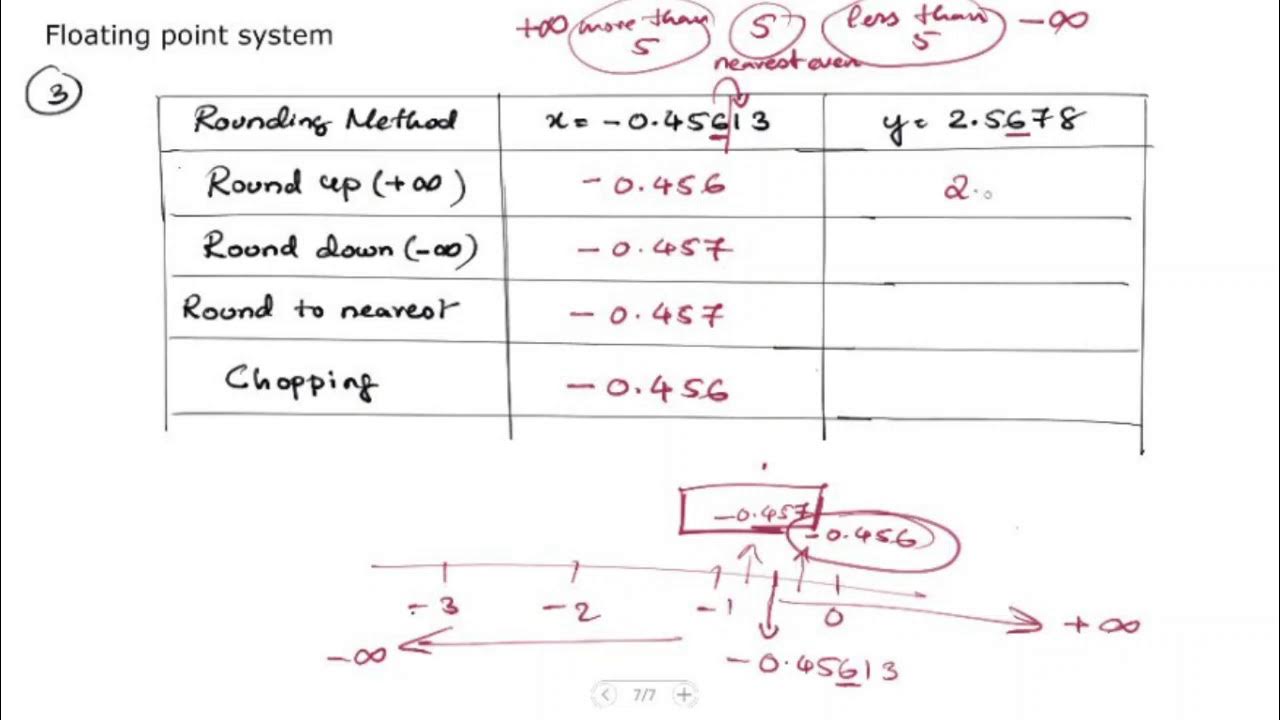 Floating point system
+∞ more than 5 5 less than 5 -∞
nearest even
3
Rounding Method x = -0.45613 y = 2.5678
Round up (+∞) -0.456 2.
Round down (-∞) -0.457
Round to nearest -0.457
Chopping -0.456
-0.457
-0.456
-3 -2 -1 0 +∞
-∞
-0.45613
7/7